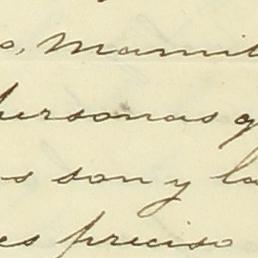 o, Mamil
personas q
os son y la
es preciso